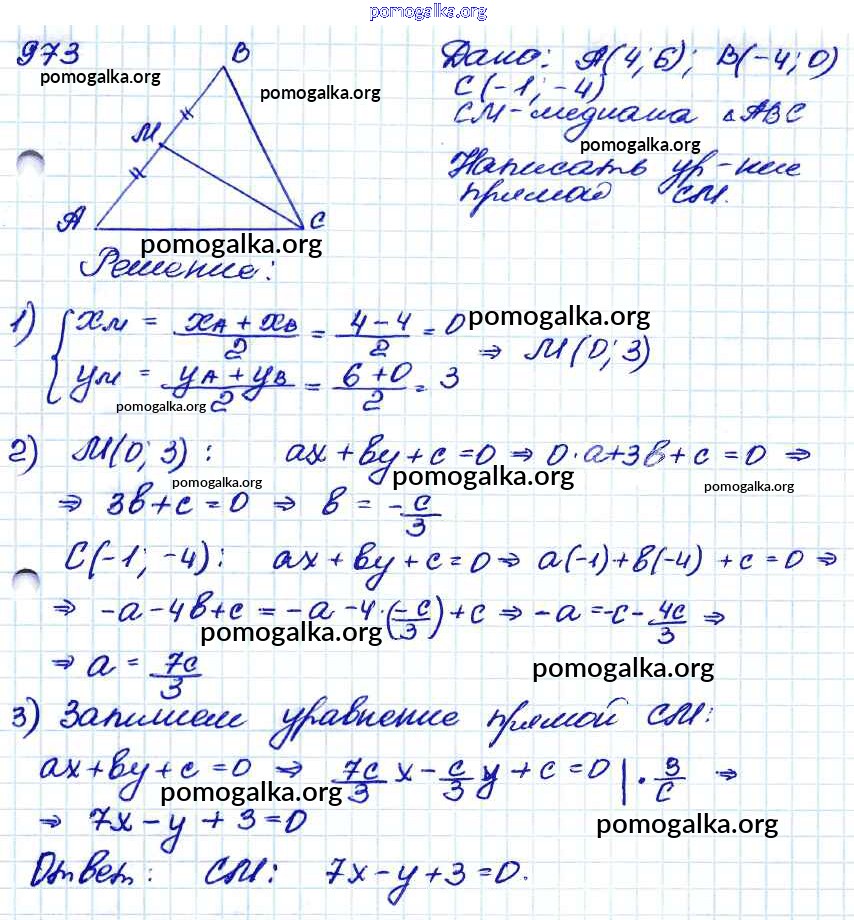 pomogalka.org
973
B
Дано: A(4; 6); B(-4; 0)
pomogalka.org
pomogalka.org
C(-1; -4)
CM-медиана ΔABC
M
pomogalka.org
Написать ур-ние
прямой CM.
A
C
pomogalka.org
Решение:
1) { xм = (xA + xB)/2 = (4 - 4)/2 = 0
pomogalka.org
yм = (yA + yB)/2 = (6 + 0)/2 = 3
⇒ M(0; 3)
pomogalka.org
2) M(0; 3): ax + by + c = 0 ⇒ 0·a + 3b + c = 0 ⇒
pomogalka.org
pomogalka.org
pomogalka.org
⇒ 3b + c = 0 ⇒ b = -c/3
C(-1; -4): ax + by + c = 0 ⇒ a(-1) + b(-4) + c = 0 ⇒
⇒ -a - 4b + c = -a - 4·(-c/3) + c ⇒ -a = -c - 4c/3 ⇒
pomogalka.org
⇒ a = 7c/3
pomogalka.org
3) Запишем уравнение прямой CM:
ax + by + c = 0 ⇒ 7c/3 x - c/3 y + c = 0 | · 3/c ⇒
pomogalka.org
⇒ 7x - y + 3 = 0
pomogalka.org
Ответ: CM: 7x - y + 3 = 0.